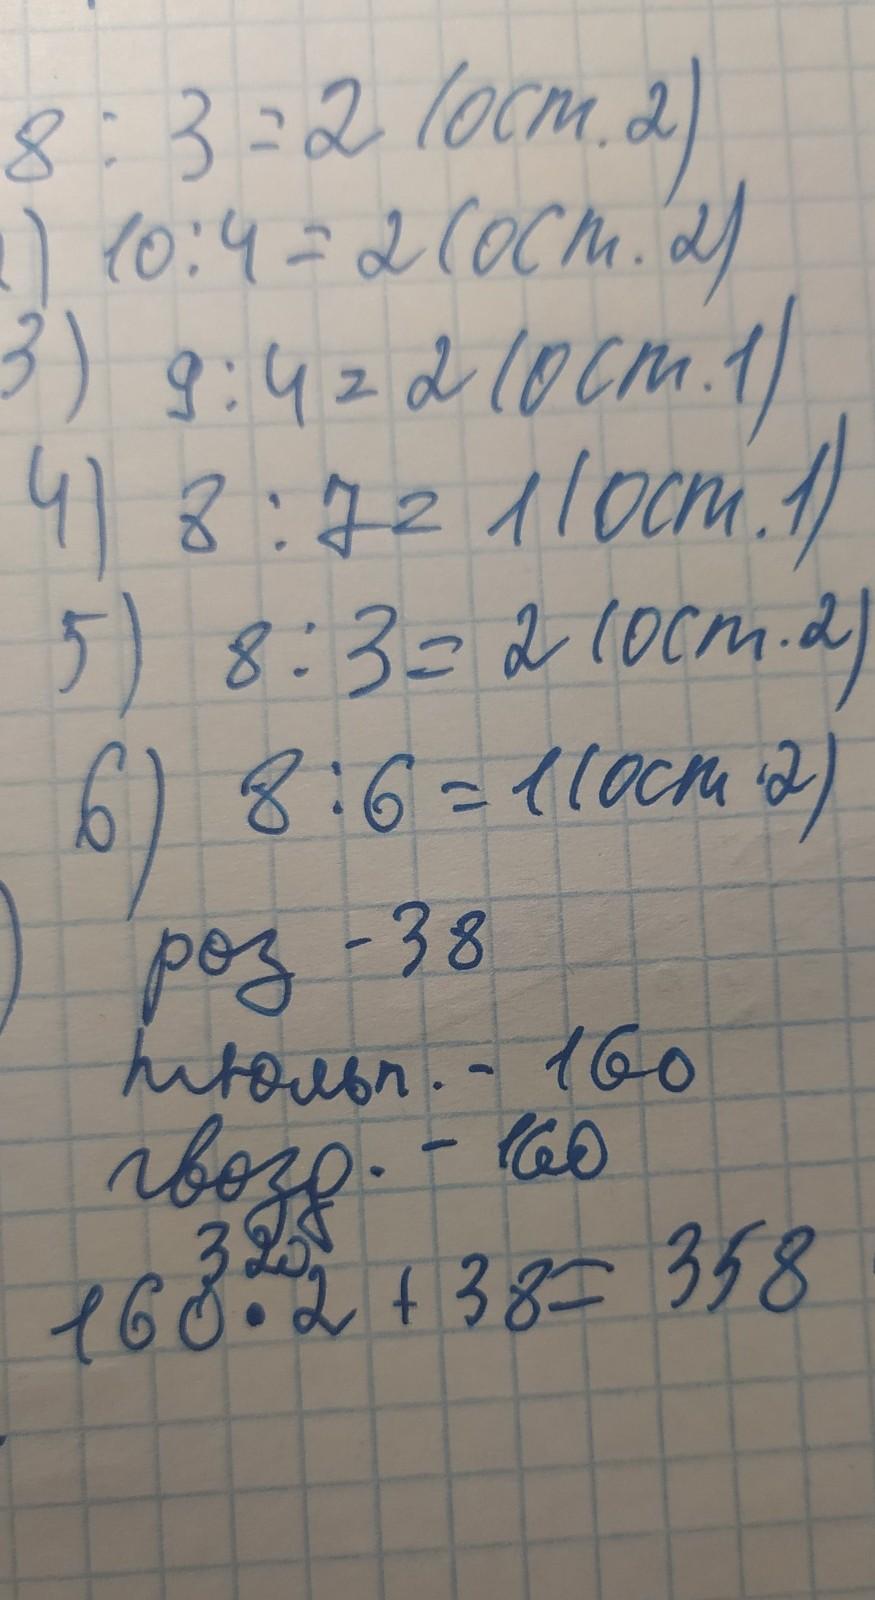 8 : 3 = 2 (ост. 2)
) 10 : 4 = 2 (ост. 2)
3) 9 : 4 = 2 (ост. 1)
4) 8 : 7 = 1 (ост. 1)
5) 8 : 3 = 2 (ост. 2)
6) 8 : 6 = 1 (ост. 2)
) роз - 38
тюльп. - 160
гвозд. - 160
320
160 • 2 + 38 = 358